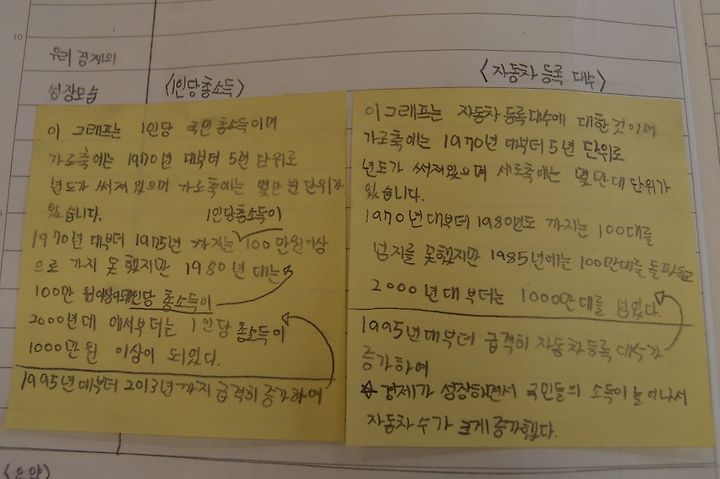 10
우리 경제의
성장모습
<1인당 총소득>
이 그래프는 1인당 국민 총소득이며
가로축에는 1970년 대부터 5년 단위로
년도가 써져있으며 가로축에는 몇만 번 단위가
있습니다.
1인당총소득이
1970년 대부터 1975년 까지는 100만원이상
으로 가지 못했지만 1980년 대는
100만 총소득이
2000년대 에서부터는 1인당 총소득이
1000만원 이상이 되었다.
1995년대부터 2013년까지 급격히 증가하여
<자동차 등록 대수>
이 그래프는 자동차등록대수에 대한것이며
가로축에는 1970년 대부터 5년 단위로
년도가 써져있으며 세로축에는 몇만대 단위가
있습니다.
1970년대부터 1980년도 까지는 100대를
넘지를 못했지만 1985년에는 100만대를 돌파하고
2000년대 부터는 1000만대를 넘었다.
1995년대부터 급격히 자동차등록 대수가
증가하여
경제가 성장하면서 국민들의 소득이 늘어나서
자동차 수가 크게 증가했다.
<요약>